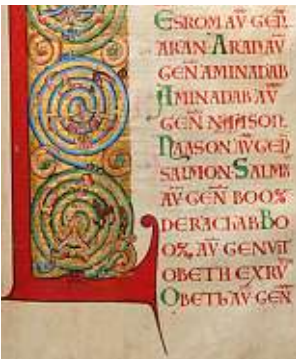 ESROM AV̄ GEN̄.
ARAN· ARAN AV̄
GEN̄ AMINADAB
AMINADAB AV̄
GEN̄ NAASON.
NAASON AV̄ GEN̄
SALMON· SALM̄
AV̄ GEN̄ BOOZ
DE RACHAB· BO
OZ, AV̄ GENVIT
OBETH EX RV
OBETH AV̄ GEN̄